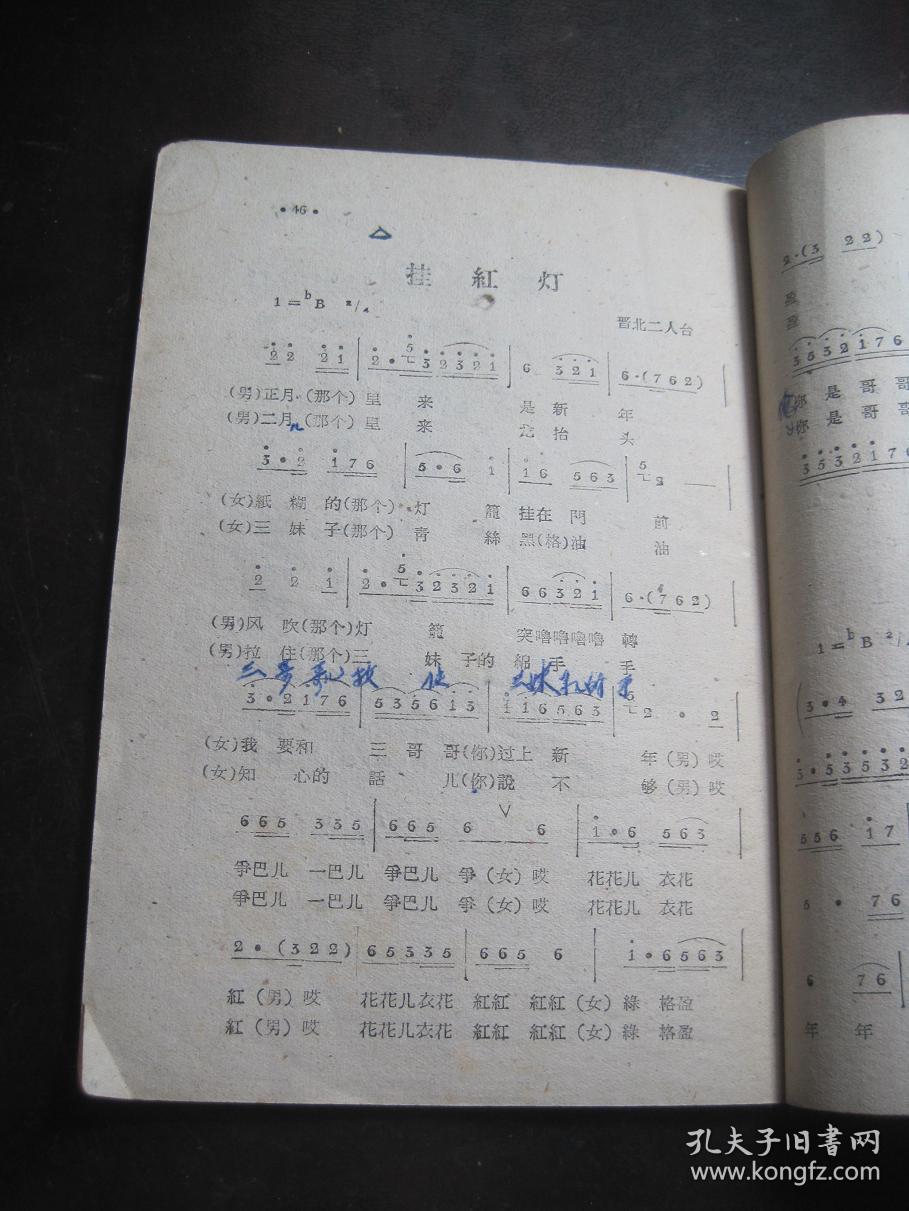 • 46 •
挂 紅 灯
1=bB 2/4
晋北二人台
2 2 2 1 | 2 • 5 3 2 3 2 1 | 6 3 2 1 | 6 • (7 6 2) |
(男)正月 (那个) 里 来 是 新 年
(男)二月 (那个) 里 来 龙 抬 头
3 • 2 1 7 6 | 5 • 6 1 | 1 6 5 6 3 | 5 2 — |
(女)紙 糊 的(那个) 灯 籠 挂在 門 前
(女)三 妹 子(那个) 青 絲 黑(格)油 油
2 2 1 | 2 • 5 3 2 3 2 1 | 6 6 3 2 1 | 6 • (7 6 2) |
(男)风 吹(那个)灯 籠 突嚕嚕嚕嚕 轉
(男)拉 住(那个)三 妹 子的 綿 手 手
3 • 2 1 7 6 | 5 3 5 6 1 3 | 1 1 6 5 6 3 | 2 • 2
(女)我 要和 三 哥 哥(你)过上 新 年(男)哎
(女)知 心的 話 儿(你)說 不 够(男)哎
6 6 5 3 3 5 | 6 6 5 6 6 | 1 • 6 5 6 3 |
爭巴儿 一巴儿 爭巴儿 爭(女)哎 花花儿 衣花
爭巴儿 一巴儿 爭巴儿 爭(女)哎 花花儿 衣花
2 • (3 2 2) | 6 5 3 3 5 | 6 6 5 6 | 1 • 6 5 6 3 |
紅(男)哎 花花儿衣花 紅紅 紅紅(女)綠 格盈
紅(男)哎 花花儿衣花 紅紅 紅紅(女)綠 格盈
2 • (3 2 2)
盈
盈
3 5 3 2 1 7 6
你 是 哥 哥
你 是 哥 哥
3 5 3 2 1 7 6
1=bB 2/
(3 • 4 3 2
3 • 5 3 5 3 0
5 5 6 1 7
5 • 7 6
6 7 6
年 年
孔夫子旧书网
www.kongfz.com